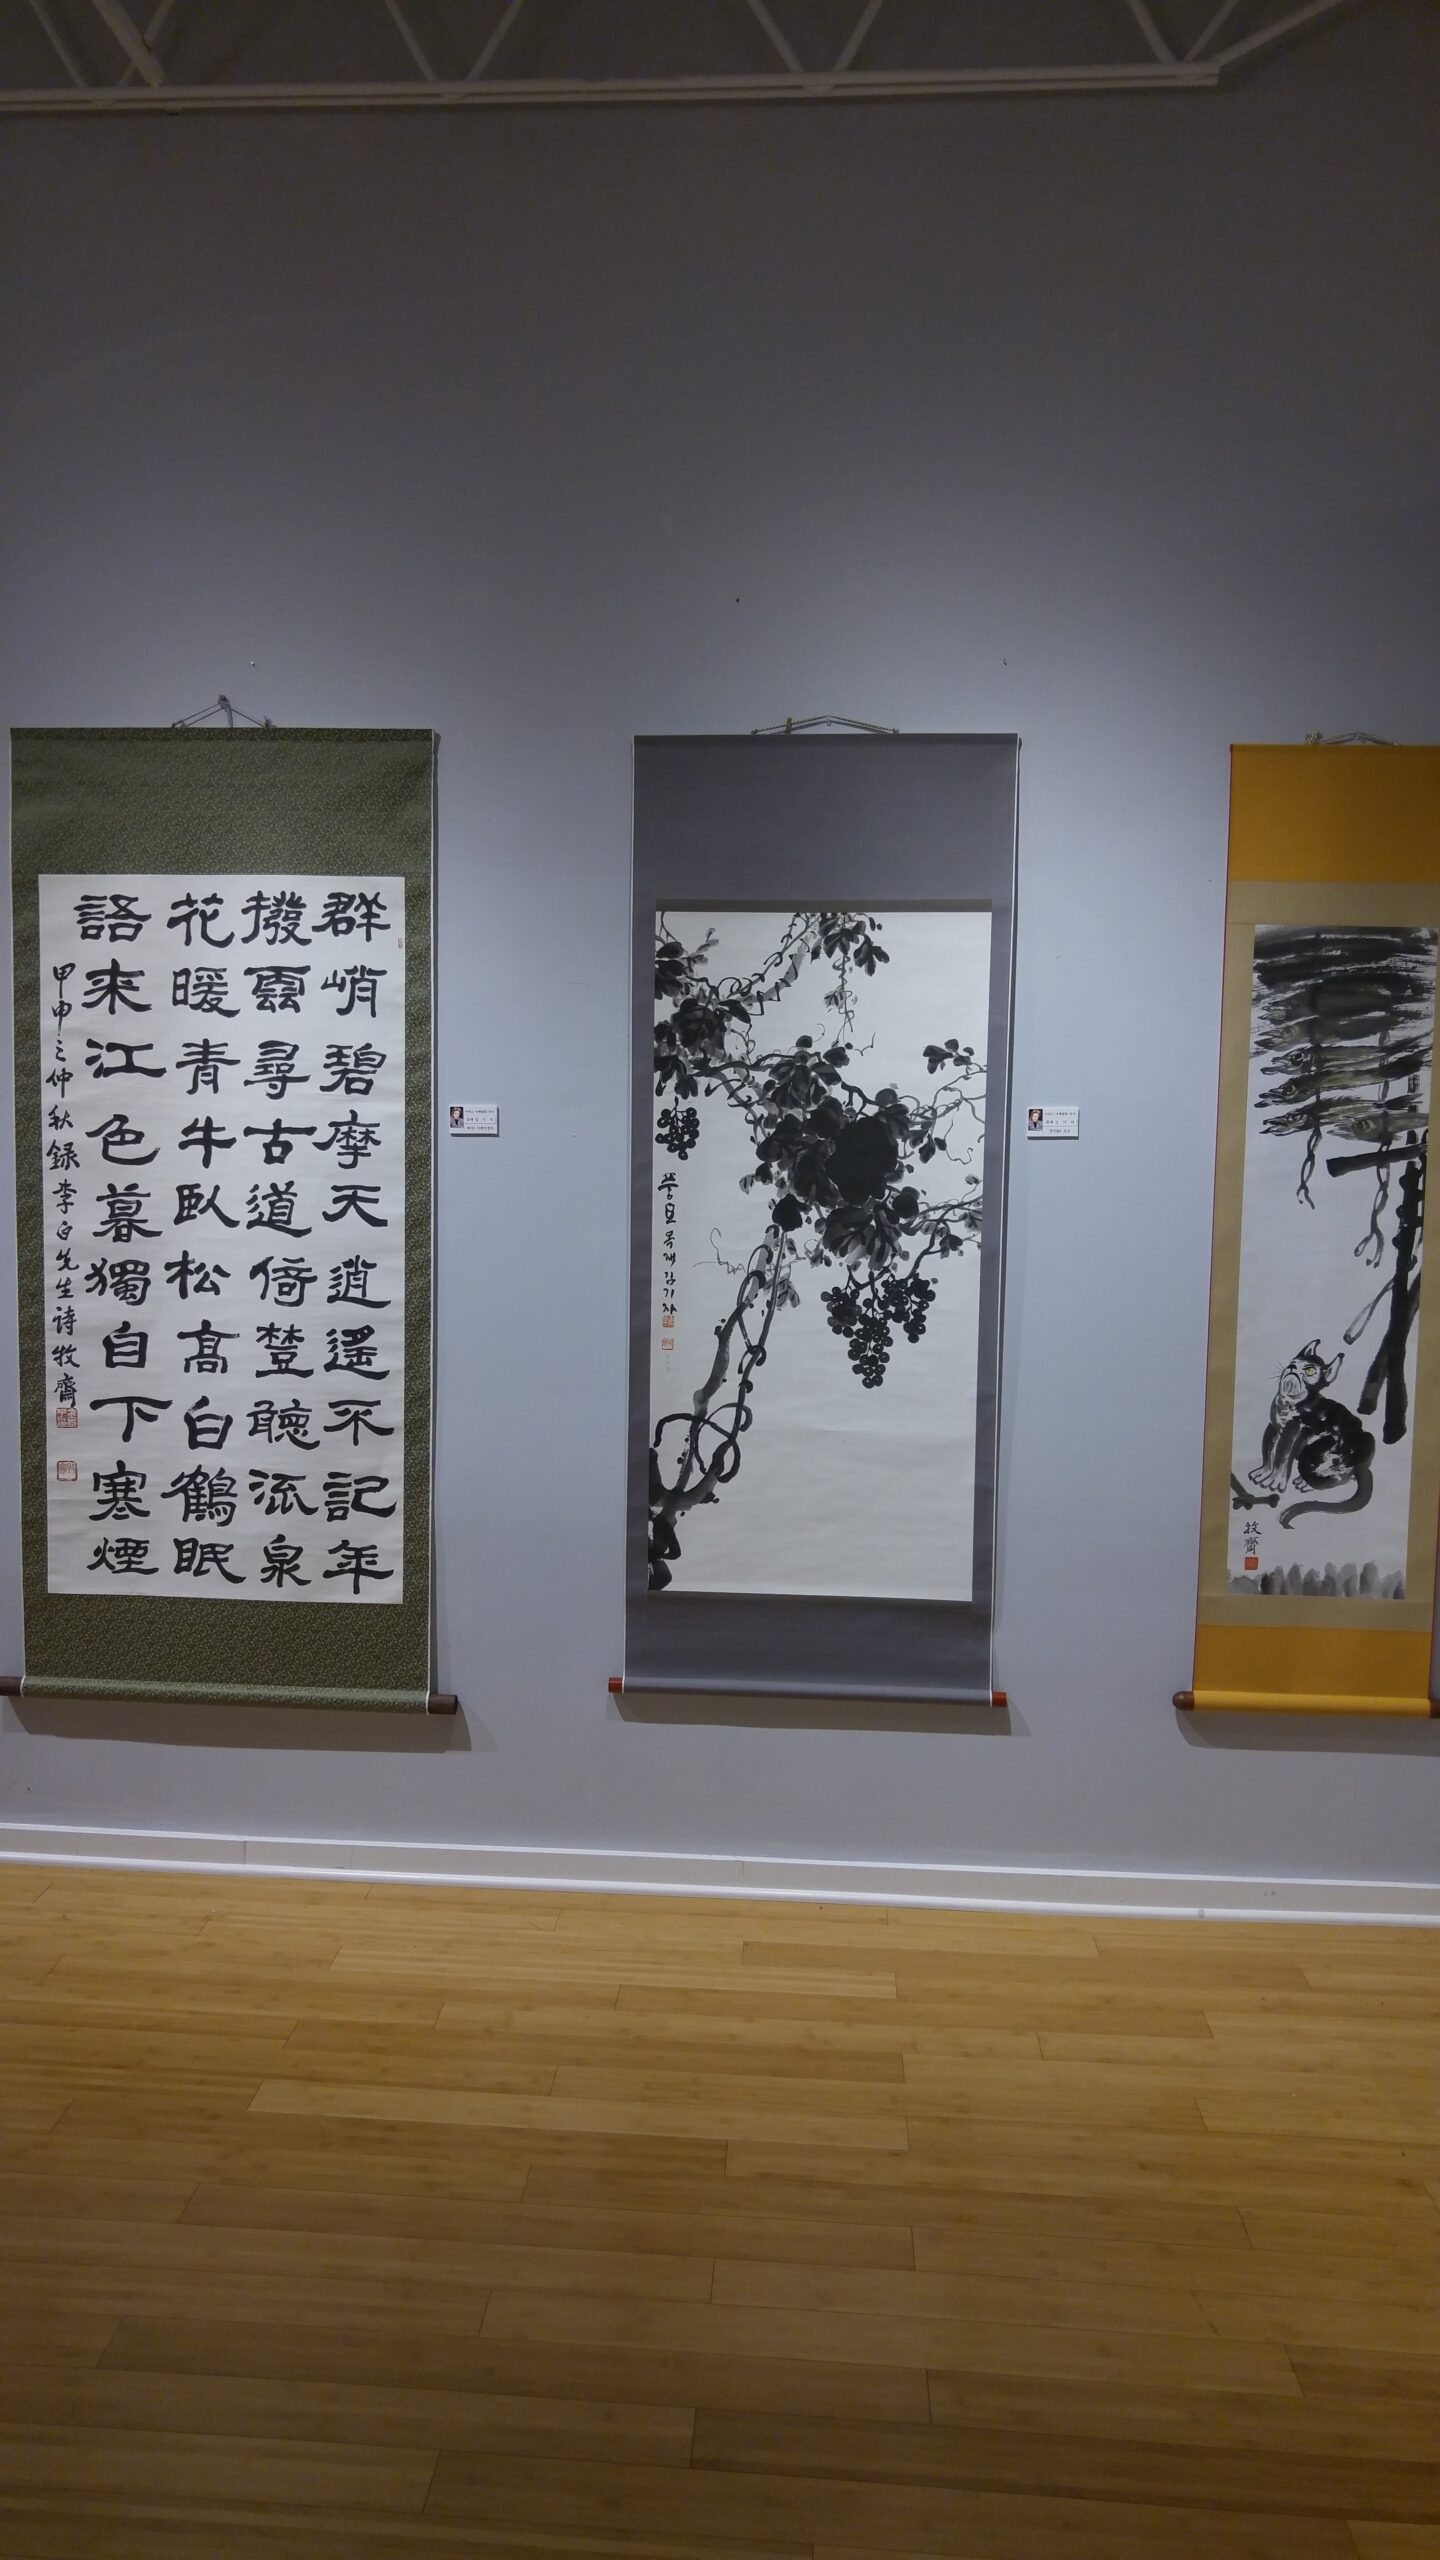 群峭碧摩天逍遥不記年
撥雲尋古道倚𣗳聽流泉
花暖青牛臥松高白鶴眠
語来江色暮獨自下寒煙
甲申之仲秋録李白先生诗牧齋
풍요 목재 김기자
牧齋